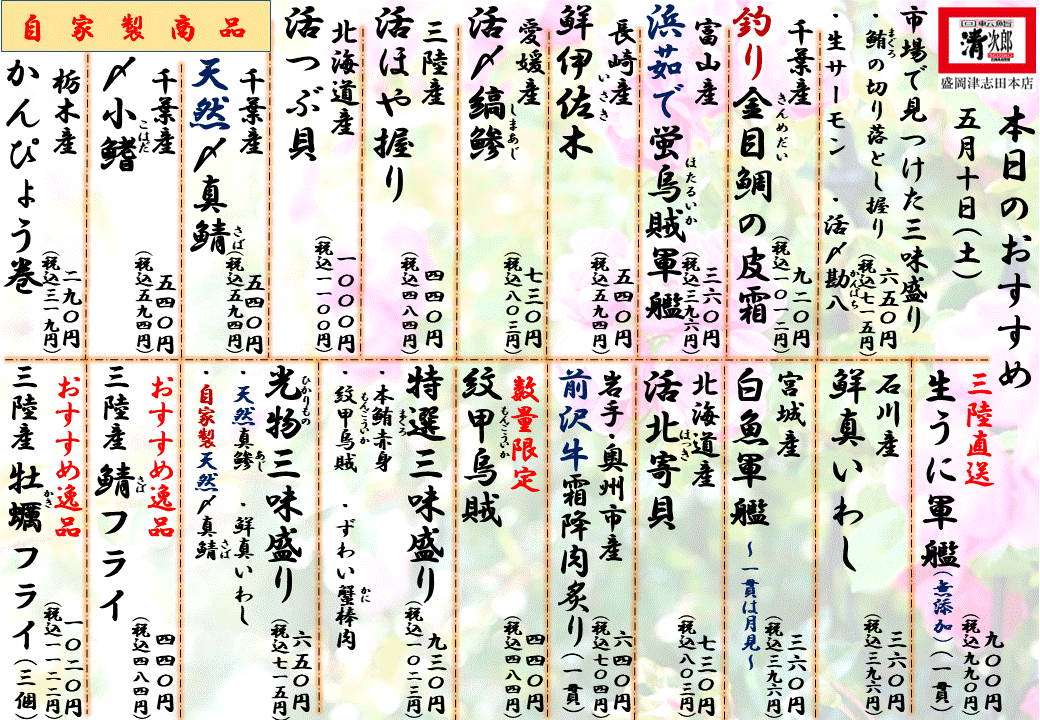 回転鮨
清次郎
盛岡津志田本店
本日のおすすめ
五月十日(土)
市場で見つけた三味盛り
・鮪の切り落とし握り
まぐろ
・生サーモン ・活〆勘八
かんぱち
六五〇円
(税込七一五円)
千葉産
釣り金目鯛の皮霜
きんめだい
九二〇円
(税込一〇一二円)
富山産
浜茹で蛍烏賊軍艦
ほたるいか
三六〇円
(税込三九六円)
長崎産
鮮伊佐木
いさき
五四〇円
(税込五九四円)
愛媛産
活〆縞鯵
しまあじ
七三〇円
(税込八〇三円)
三陸産
活ほや握り
四四〇円
(税込四八四円)
北海道産
活つぶ貝
一〇〇〇円
(税込一一〇〇円)
自家製商品
千葉産
天然〆真鯖
さば
五四〇円
(税込五九四円)
千葉産
〆小鰭
こはだ
五四〇円
(税込五九四円)
栃木産
かんぴょう巻
二九〇円
(税込三一九円)
三陸直送
生うに軍艦(無添加)(一貫)
九〇〇円
(税込九九〇円)
石川産
鮮真いわし
三六〇円
(税込三九六円)
宮城産
白魚軍艦
~一貫は月見~
三六〇円
(税込三九六円)
北海道産
活北寄貝
ほっき
七三〇円
(税込八〇三円)
岩手・奥州市産
前沢牛霜降肉炙り(一貫)
六四〇円
(税込七〇四円)
数量限定
紋甲烏賊
もんごういか
四四〇円
(税込四八四円)
特選三味盛り
・本鮪赤身
まぐろ
・紋甲烏賊
もんごういか
・ずわい蟹棒肉
かに
九三〇円
(税込一〇二三円)
光物三味盛り
ひかりもの
・天然真鯵 ・鮮真いわし
あじ
・自家製天然〆真鯖
さば
六五〇円
(税込七一五円)
おすすめ逸品
三陸産 鯖フライ
さば
四四〇円
(税込四八四円)
おすすめ逸品
三陸産 牡蠣フライ(三個)
かき
一〇二〇円
(税込一一二二円)